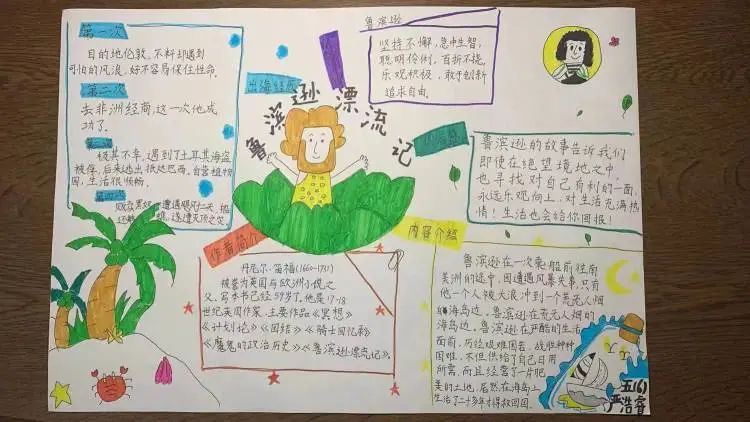 第一次
目的地伦敦,不料却遇到
可怕的风浪,好不容易保住性命.
第二次
去非洲经商,这一次他成
功了.
极其不幸,遇到了土耳其海盗
被俘,后来逃出抵达巴西,自营植物
园,生活很顺畅.
第四次
鲁滨逊
坚持不懈,急中生智,
聪明伶俐,百折不挠,
乐观积极,敢于创新
追求自由.
出海经历
鲁滨逊漂流记
读后感
鲁滨逊的故事告诉我们
即使在绝望境地之中,
也寻找对自己有利的一面,
永远乐观向上,对生活充满热
情!生活也会给你回报!
作者简介
丹尼尔·笛福(1660-1731)
被誉为英国与欧洲小说之
父,写本书已经59岁了,他是17-18
世纪英国作家.主要作品《冥想》
《计划论》《团结》《骑士回忆录》
《魔鬼的政治历史》《鲁滨逊漂流记》.
内容介绍
鲁滨逊在一次乘船前往南
美洲的途中,因遭遇风暴失事,只有
他一个人被大浪冲到一个荒无人烟
的海岛边.鲁滨逊在荒无人烟的
海岛边,鲁滨逊在严酷的生活
面前,历经艰难困苦,战胜种种
困难,不但供给了自己日用
所需,而且经营了一片肥
美的土地.居然在海岛上
生活了二十多年才得救回国.
五(6)
严浩睿